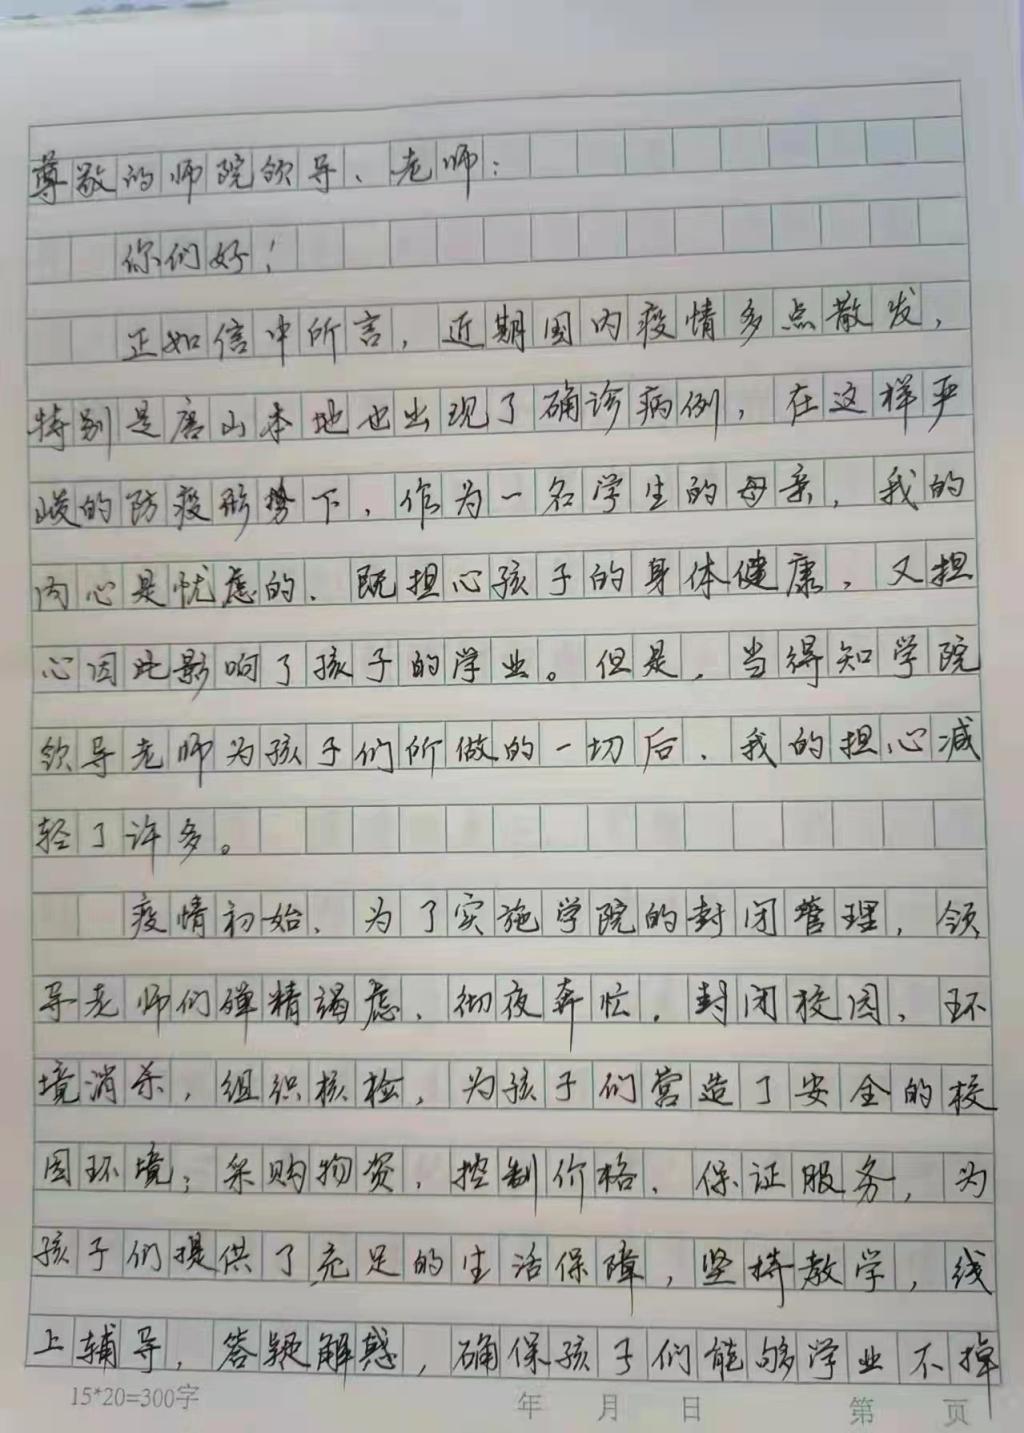 尊敬的师院领导、老师：
你们好！
正如信中所言，近期国内疫情多点散发，
特别是唐山本地也出现了确诊病例，在这样严
峻的防疫形势下，作为一名学生的母亲，我的
内心是忧虑的、既担心孩子的身体健康，又担
心因此影响了孩子的学业。但是，当得知学院
领导老师为孩子们所做的一切后，我的担心减
轻了许多。
疫情初始、为了实施学院的封闭管理，领
导老师们殚精竭虑、彻夜奔忙，封闭校园、环
境消杀，组织核检，为孩子们营造了安全的校
园环境；采购物资，控制价格、保证服务，为
孩子们提供了充足的生活保障，坚持教学，线
上辅导，答疑解惑，确保孩子们能够学业不掉
15*20=300字 年 月 日 第 页